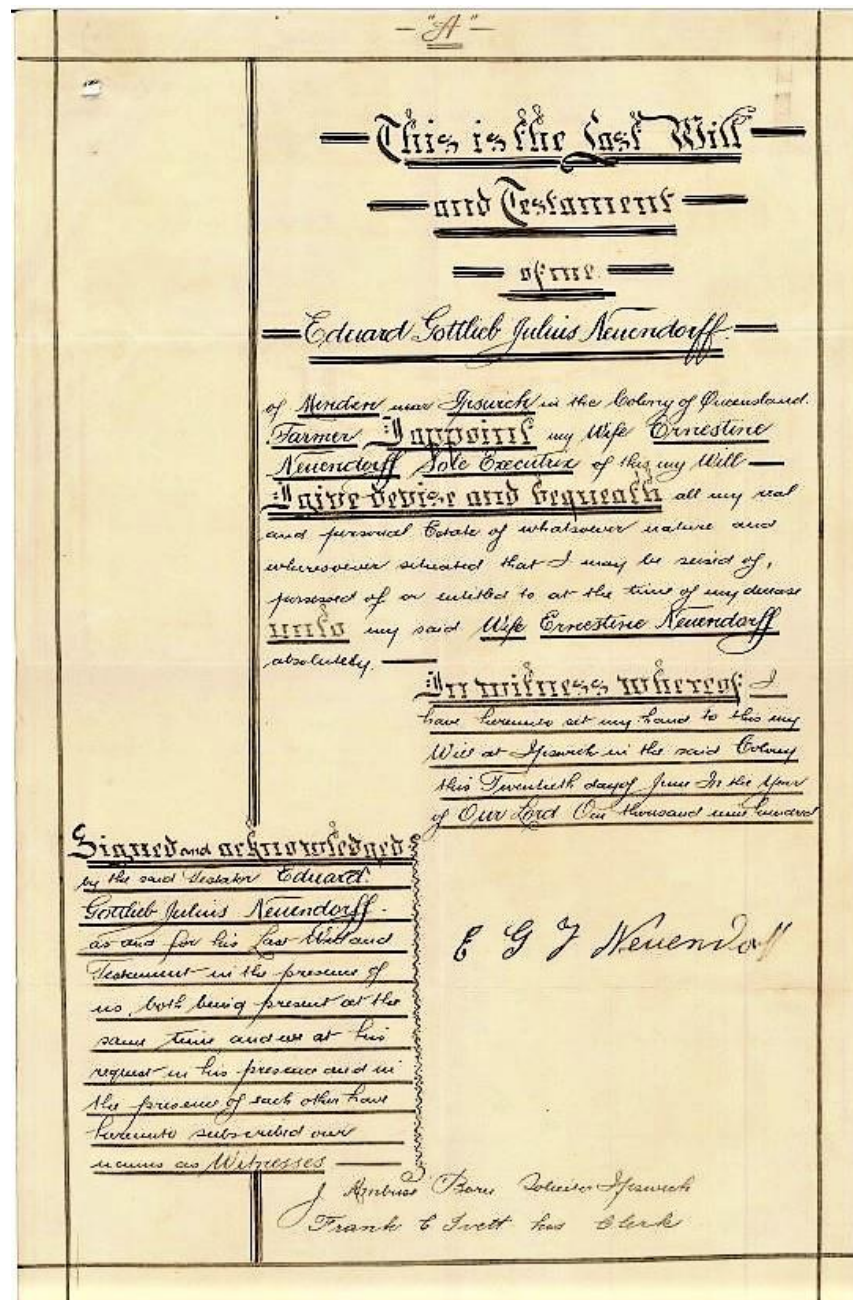 — "A" —
This is the Last Will
and Testament
of me
Eduard Gottlieb Julius Neuendorff
of Minden near Ipswich in the Colony of Queensland.
Farmer I appoint my Wife Ernestine
Neuendorff Sole Executrix of this my Will —
I give devise and bequeath all my real
and personal Estate of whatsoever nature and
wheresoever situated that I may be seised of,
possessed of or entitled to at the time of my decease
unto my said Wife Ernestine Neuendorff
absolutely. —
In witness whereof I
have hereunto set my hand to this my
Will at Ipswich in the said Colony
this Twentieth day of June In the Year
of Our Lord One thousand nine hundred
Signed and acknowledged
by the said Testator Eduard
Gottlieb Julius Neuendorff
as and for his Last Will and
Testament in the presence of
us, both being present at the
same time and we at his
request in his presence and in
the presence of each other have
hereunto subscribed our
names as Witnesses —
E G J Neuendorff
J Ambrose Solicitor Ipswich
Frank C his Clerk